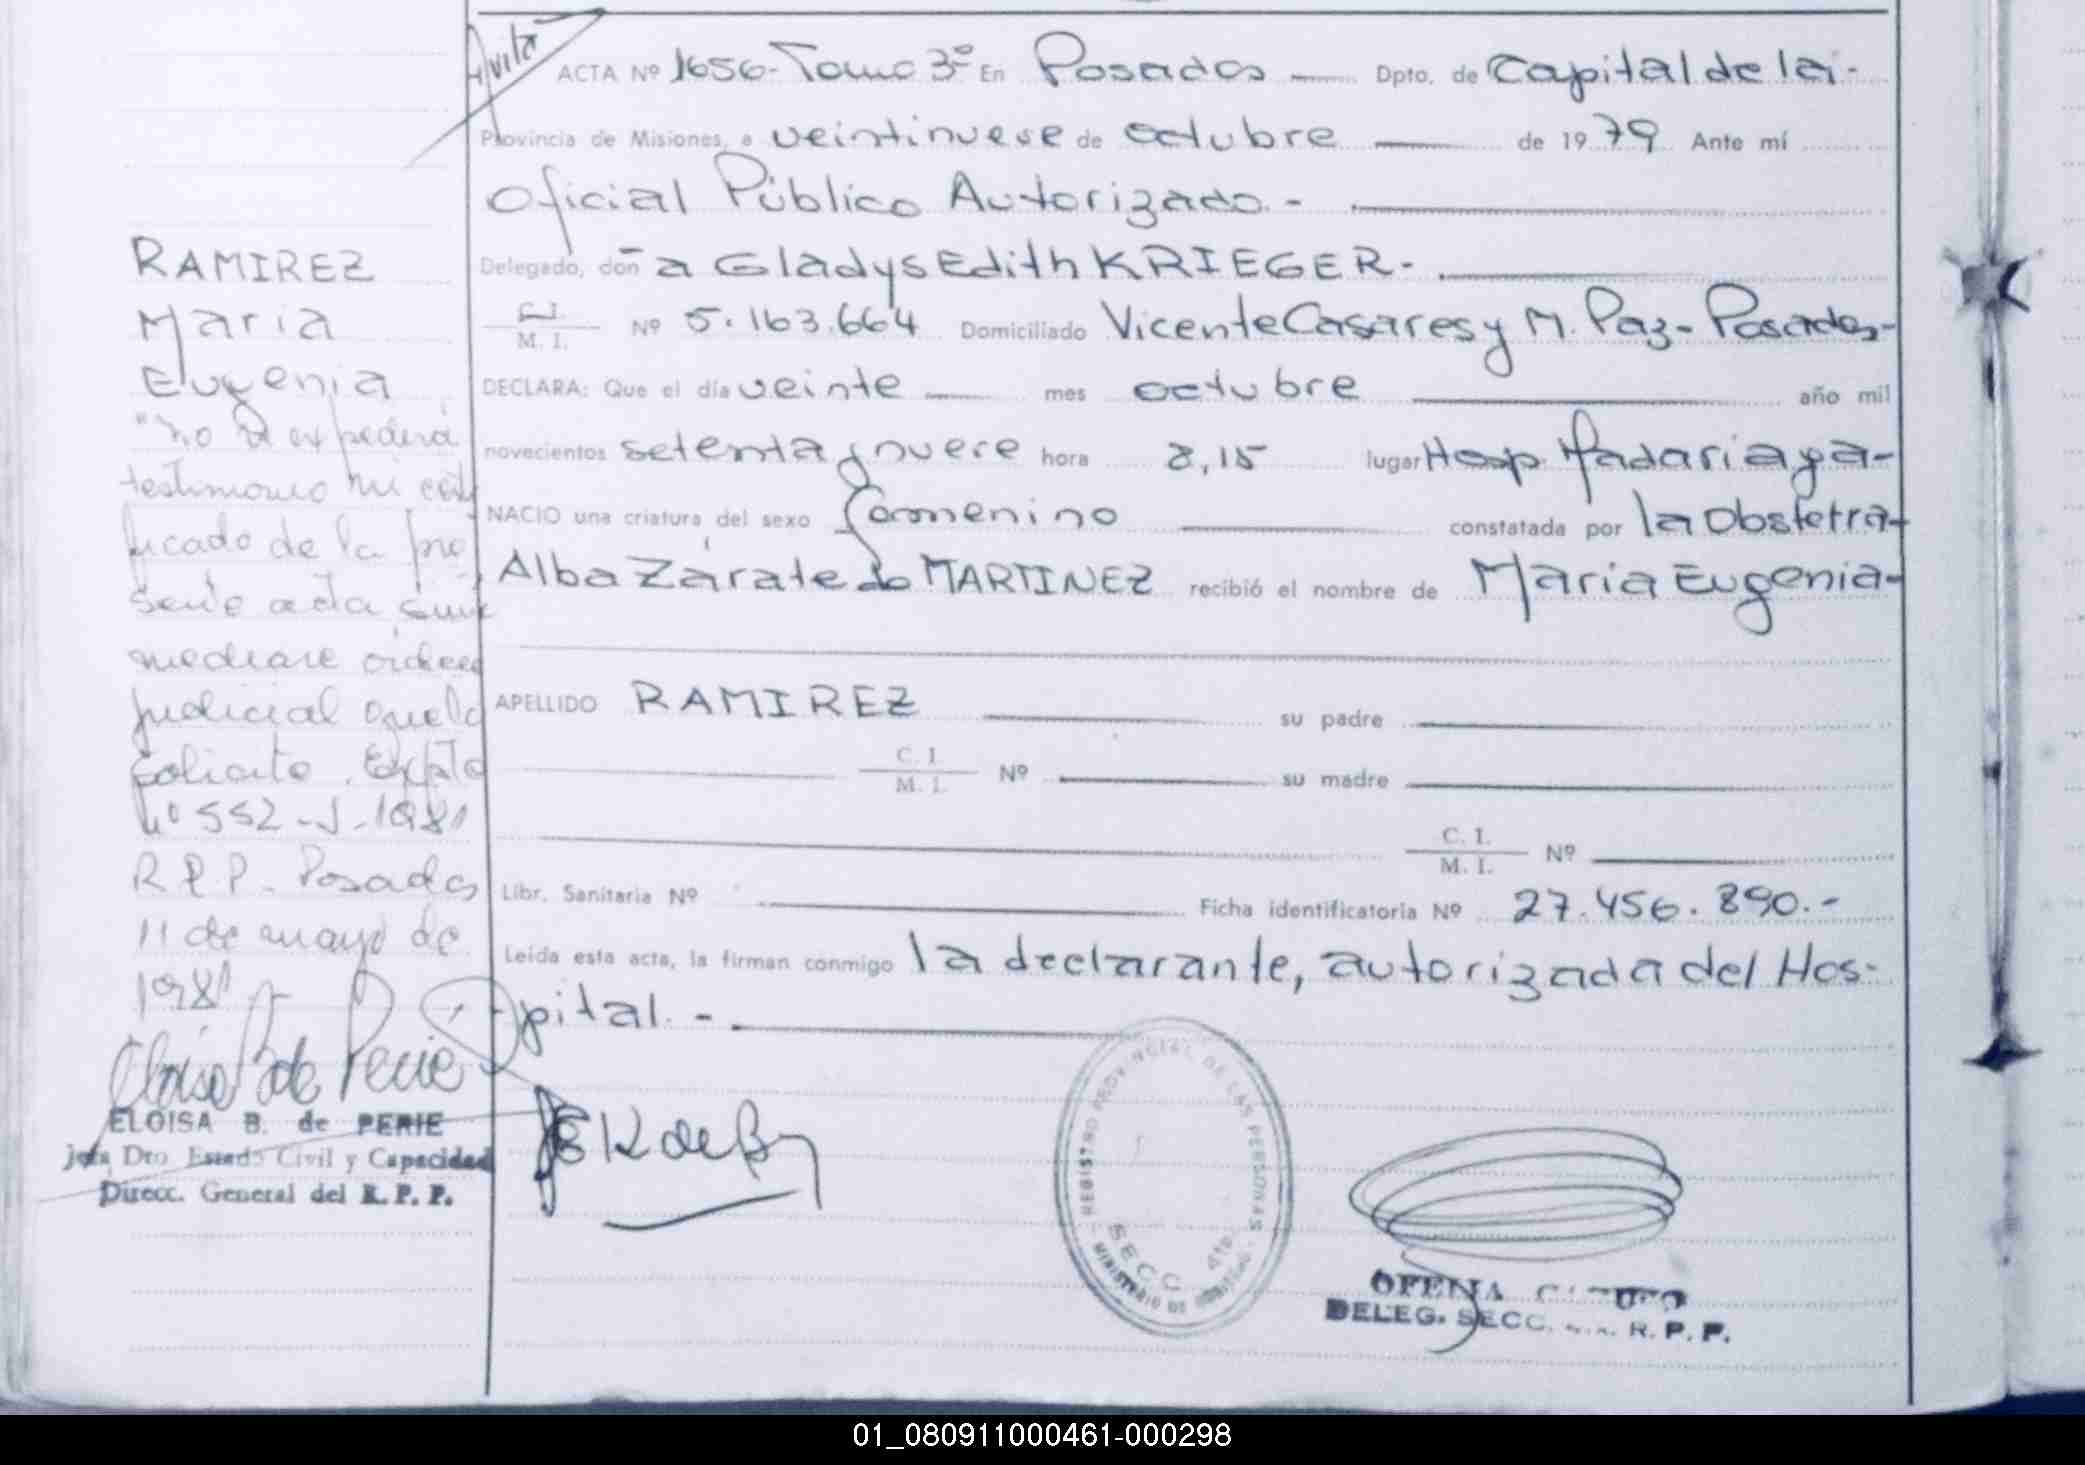 Avila
ACTA Nº 1656- Tomo 3º En Posadas Dpto. de Capital de la-
Provincia de Misiones, a veintinueve de octubre de 1979 Ante mí
Oficial Público Autorizado.-
Delegado, don ña Gladys Edith KRIEGER-
C.I.
M. I. Nº 5.163.664 Domiciliado Vicente Casares y M. Paz- Posadas-
DECLARA: Que el día veinte mes octubre año mil
novecientos setenta y nueve hora 8,15 lugar Hosp. Madariaga-
NACIO una criatura del sexo femenino constatada por la Obstetra-
Alba Zárate de MARTINEZ recibió el nombre de María Eugenia-
APELLIDO RAMIREZ su padre
C. I.
M. I. Nº su madre
C. I.
M. I. Nº
Libr. Sanitaria Nº Ficha identificatoria Nº 27.456.890.-
Leída esta acta, la firman conmigo la declarante, autorizada del Hos-
pital.-
RAMIREZ
Maria
Eugenia
"no se expedirá
testimonio ni certi
ficado de la pre
sente acta sin
mediare orden
judicial que lo
solicite. Expte
Nº 552-J-1981
R.P.P. Posadas
11 de mayo de
1981
Eloisa B de Perie
ELOISA B. de PERIE
Jefa Dto Estado Civil y Capacidad
Direcc. General del R. P. P.
REGISTRO PROVINCIAL DE LAS PERSONAS
SECC. 4ta.
MINISTERIO DE
DELEG. SECC. R. P. P.
01_080911000461-000298